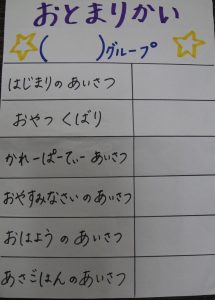 おとまりかい
(　　　)グループ
はじまりの あいさつ
おやつ くばり
かれーぱーてぃー あいさつ
おやすみなさい の あいさつ
おはよう の あいさつ
あさごはん の あいさつ